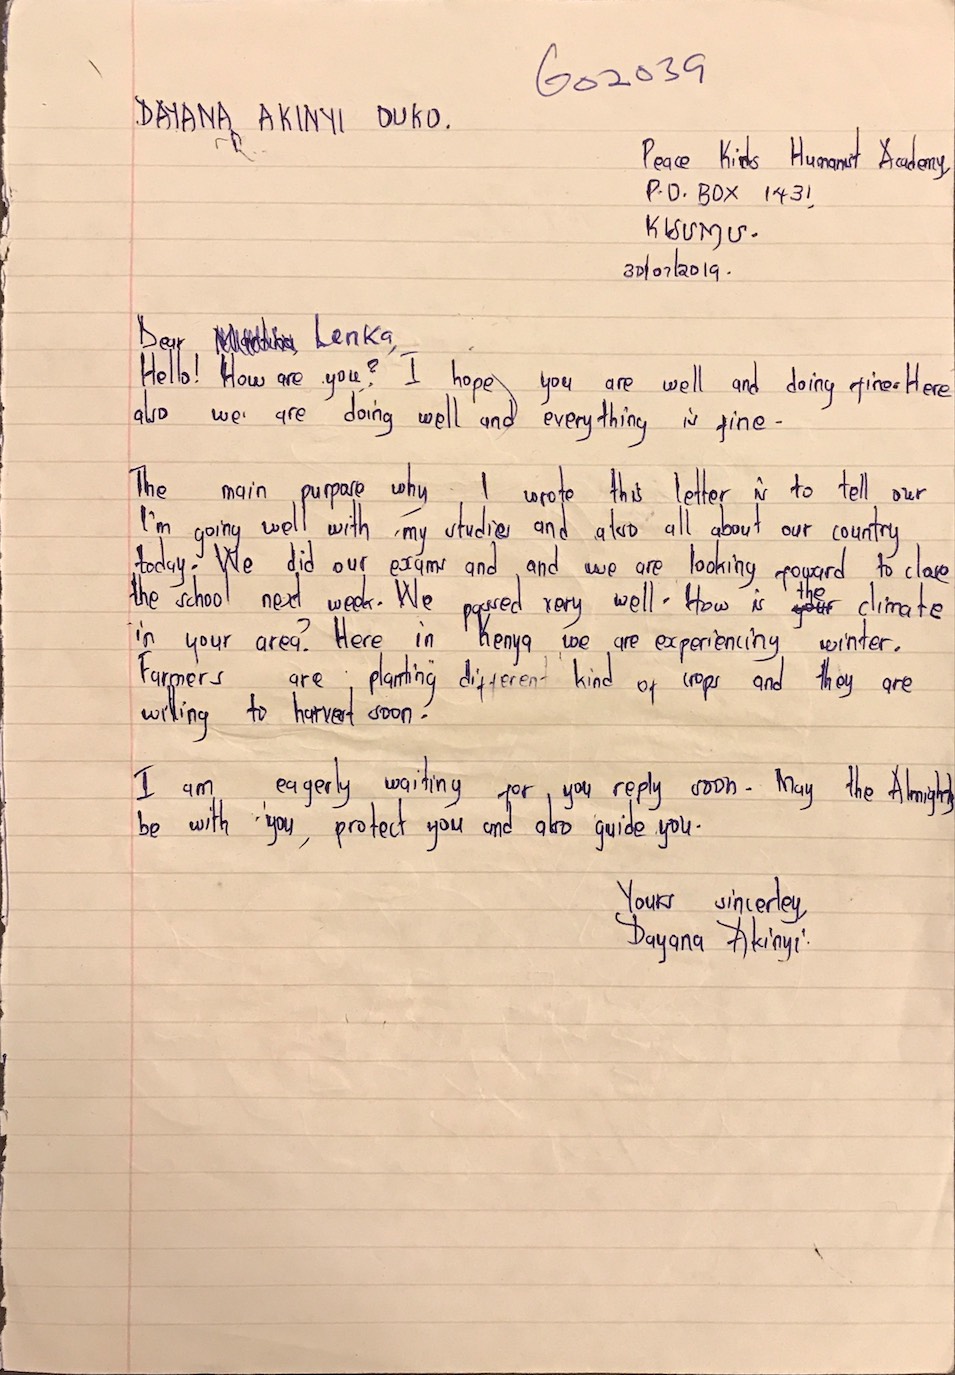 G02039
DAYANA AKINYI OUKO.
Peace Kids Humanist Academy
P.O. BOX 1431,
KISUMU.
30/07/2019.
Dear Lenka,
Hello! How are you? I hope you are well and doing fine. Here
also we are doing well and everything is fine.
The main purpose why I wrote this letter is to tell our
I'm going well with my studies and also all about our country
today. We did our exams and and we are looking foward to close
the school next week. We passed very well. How is the climate
in your area? Here in Kenya we are experiencing winter.
Farmers are planting different kind of crops and they are
willing to harvest soon.
I am eagerly waiting for you reply soon. May the Almighty
be with you, protect you and also guide you.
Yours sincerley,
Dayana Akinyi.